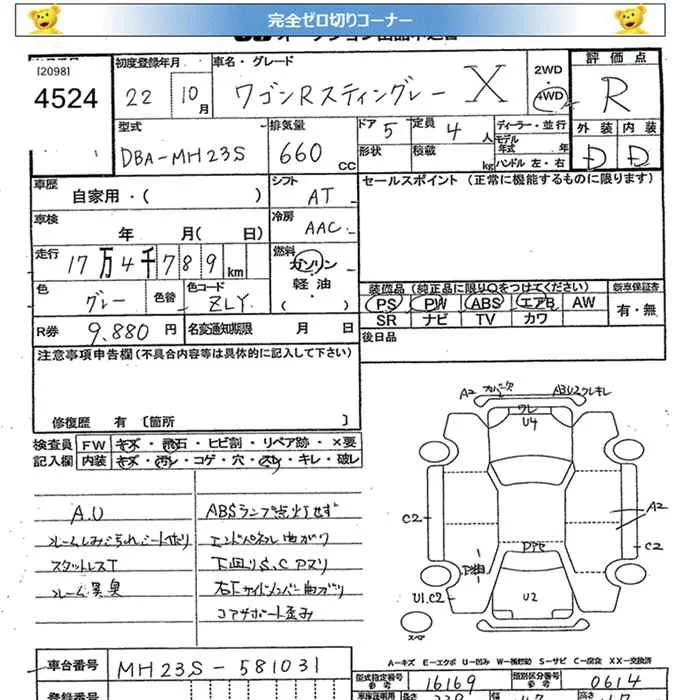 完全ゼロ切りコーナー
[2098]
4524
初度登録年月
22 10月
車名・グレード
ワゴンRスティングレー X
2WD
・
4WD
評価点
R
型式
DBA-MH23S
排気量
660 CC
ドア 5
定員 4 人
形状
積載 kg
ディーラー・並行
モデル年式 年
ハンドル 左・右
外装 内装
D D
車歴
自家用・( )
シフト
AT
セールスポイント (正常に機能するものに限ります)
車検
年 月( 日)
冷房
AAC
走行
17万4千789km
燃料
ガソリン
軽油・
( )
色
グレー
色替
色コード
ZLY
装備品 (純正品に限り○をつけてください)
新車保証書
PS PW ABS エアB AW
有・無
SR ナビ TV カワ
R券 9,880 円
名変通知期限 月 日
後日品
注意事項申告欄 (不具合内容等は具体的に記入して下さい)
修復歴 有 〔箇所 〕
検査員
記入欄
FW キズ・飛石・ヒビ割・リペア跡・×要
内装 キズ・汚レ・コゲ・穴・スレ・キレ・破レ
A.U
スタットレスT
フレーム異臭
ABSランプ点灯せず
エンドパネル曲がり
下回りS,Cアリ
右下サイドメンバー曲がり
コアサポート歪み
A2
A3U2ワレキレ
ワレ
U4
C2
A2
C2
U1,C2
U2
スペア
A-キズ E-エクボ U-凹み W-補修跡 S-サビ C-腐食 XX-交換済
車台番号 MH23S-581031
型式指定番号 16169
類別区分番号 0614
登録番号